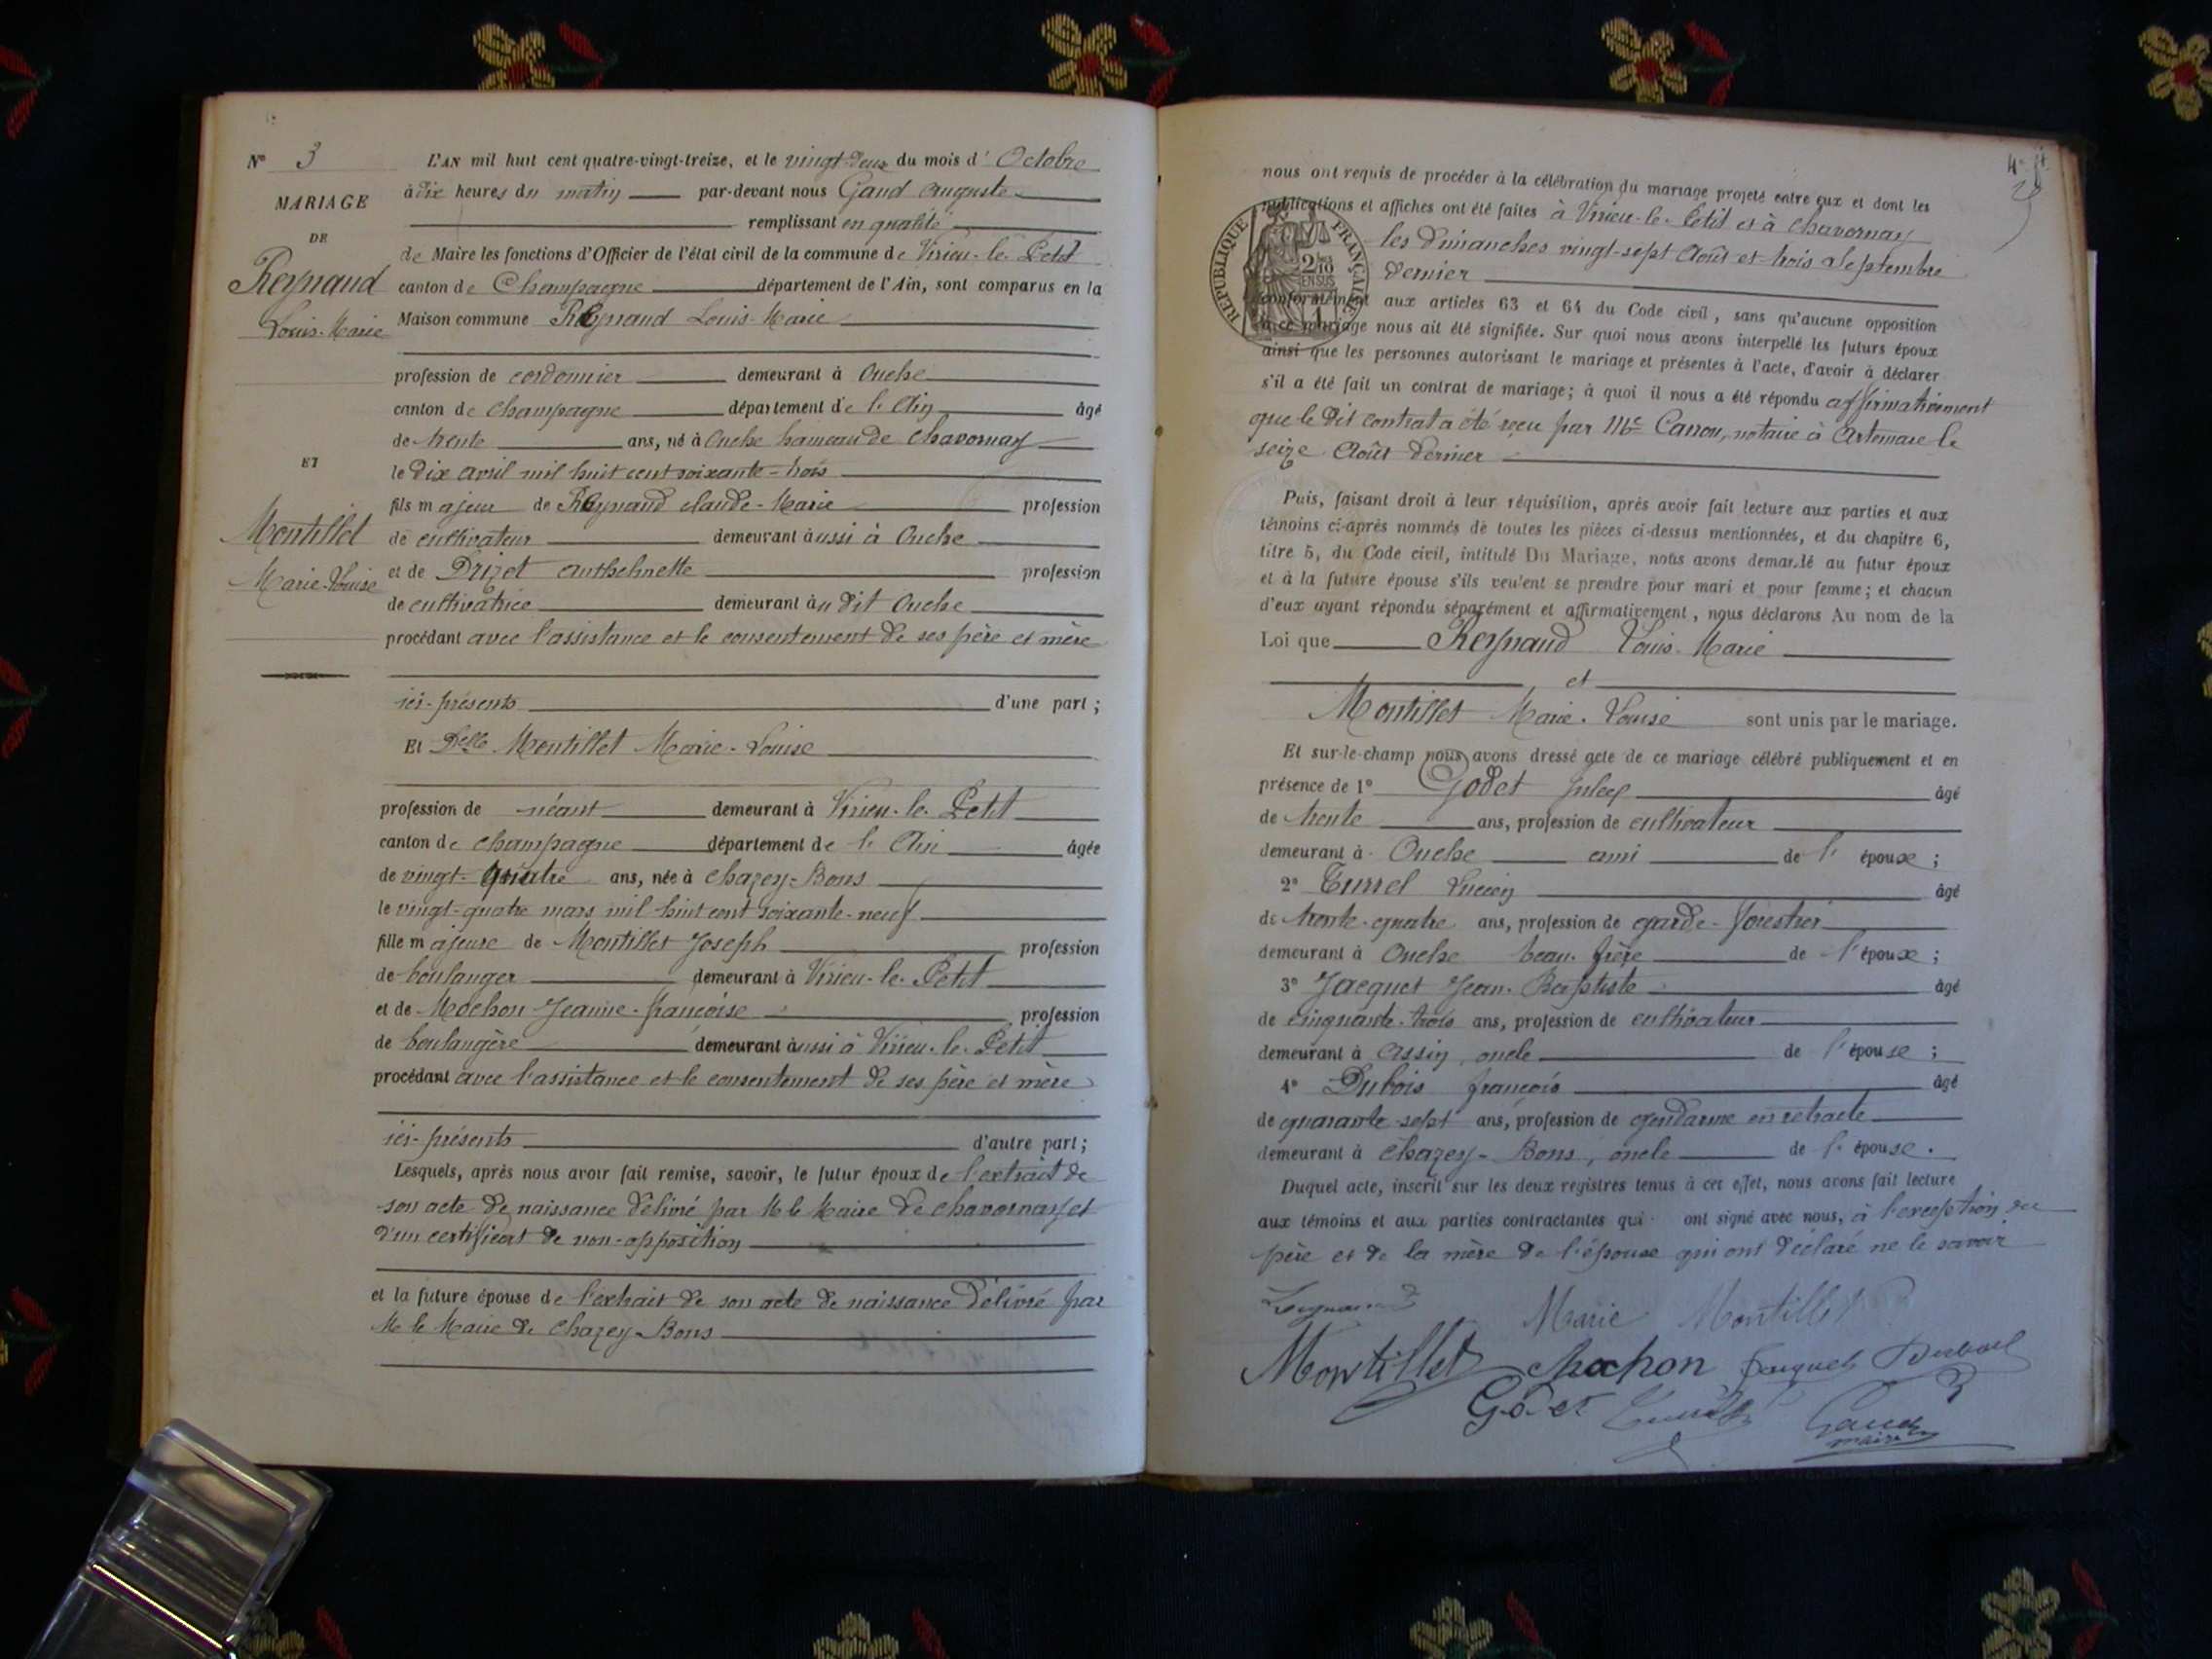 N° 3
MARIAGE
DE
Reynaud
Louis-Marie
ET
Montillet
Marie-Louise
L'AN mil huit cent quatre-vingt-treize, et le vingt-deux du mois d' Octobre
à dix heures du matin par-devant nous Gaud Auguste
remplissant en qualité
de Maire les fonctions d'Officier de l'état civil de la commune de Virieu-le-Petit
canton de Champagne département de l'Ain, sont comparus en la
Maison commune Reynaud Louis-Marie
profession de cordonnier demeurant à Ouche
canton de Champagne département de l'Ain âgé
de trente ans, né à Ouche hameau de Chavornay
le dix avril mil huit cent soixante-trois
fils majeur de Reynaud Claude-Marie profession
de cultivateur demeurant aussi à Ouche
et de Drizet Anthelmette profession
de cultivatrice demeurant au dit Ouche
procédant avec l'assistance et le consentement de ses père et mère
ici-présents d'une part;
Et Delle Montillet Marie-Louise
profession de néant demeurant à Virieu-le-Petit
canton de Champagne département de l'Ain âgée
de vingt-quatre ans, née à Chazey-Bons
le vingt-quatre mars mil huit cent soixante-neuf
fille majeure de Montillet Joseph profession
de boulanger demeurant à Virieu-le-Petit
et de Mochon Jeanne-françoise profession
de boulangère demeurant aussi à Virieu-le-Petit
procédant avec l'assistance et le consentement de ses père et mère
ici-présents d'autre part;
Lesquels, après nous avoir fait remise, savoir, le futur époux de l'extrait de
son acte de naissance délivré par M le Maire de Chavornay et
d'un certificat de non-opposition
et la future épouse de l'extrait de son acte de naissance délivré par
M le Maire de Chazey-Bons
nous ont requis de procéder à la célébration du mariage projeté entre eux et dont les
publications et affiches ont été faites à Virieu-le-Petit et à Chavornay
les dimanches vingt-sept Août et trois Septembre
dernier
REPUBLIQUE FRANÇAISE
conformément aux articles 63 et 64 du Code civil, sans qu'aucune opposition
à ce mariage nous ait été signifiée. Sur quoi nous avons interpellé les futurs époux
ainsi que les personnes autorisant le mariage et présentes à l'acte, d'avoir à déclarer
s'il a été fait un contrat de mariage; à quoi il nous a été répondu affirmativement
que le dit contrat a été reçu par Me notaire à Artemare le
seize Août dernier
Puis, faisant droit à leur réquisition, après avoir fait lecture aux parties et aux
témoins ci-après nommés de toutes les pièces ci-dessus mentionnées, et du chapitre 6,
titre 5, du Code civil, intitulé Du Mariage, nous avons demandé au futur époux
et à la future épouse s'ils veulent se prendre pour mari et pour femme; et chacun
d'eux ayant répondu séparément et affirmativement, nous déclarons Au nom de la
Loi que Reynaud Louis-Marie
et
Montillet Marie-Louise sont unis par le mariage.
Et sur-le-champ nous avons dressé acte de ce mariage célébré publiquement et en
présence de 1° Godet Jules âgé
de trente ans, profession de cultivateur
demeurant à Ouche ami de l'époux;
2° Turrel Lucien âgé
de trente-quatre ans, profession de garde-forestier
demeurant à Ouche beau-frère de l'époux;
3° Jacquet Jean-Baptiste âgé
de cinquante-trois ans, profession de cultivateur
demeurant à Assin, oncle de l'épouse;
4° Dubois françois âgé
de quarante-sept ans, profession de gendarme en retraite
demeurant à Chazey-Bons, oncle de l'épouse.
Duquel acte, inscrit sur les deux registres tenus à cet effet, nous avons fait lecture
aux témoins et aux parties contractantes qui ont signé avec nous, à l'exception du
père et de la mère de l'épouse qui ont déclaré ne le savoir
Reynaud Marie Montillet
Montillet Mochon Jacquet Dubois
Godet Turrel Gaud
maire